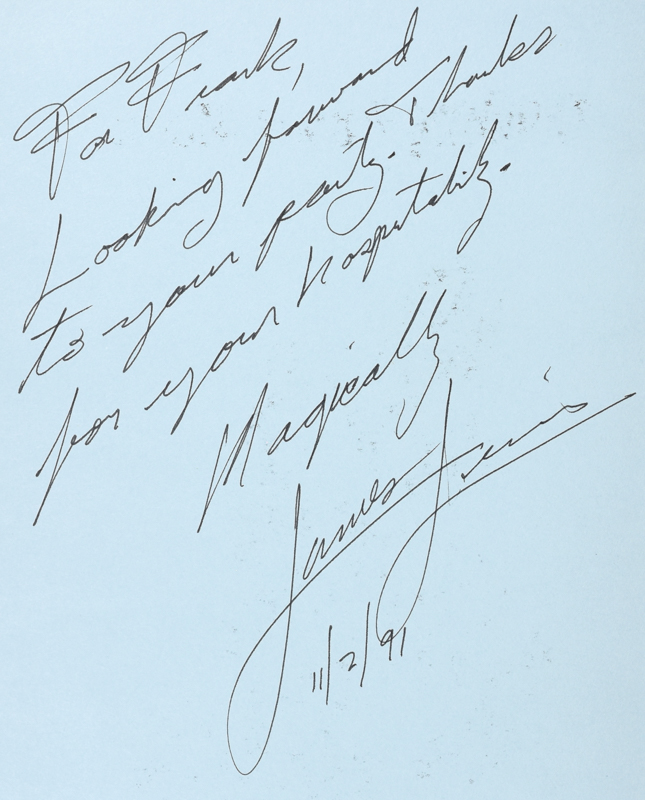 For Frank,
Looking forward
to your party. Thanks
for your hospitality.
Magically
James
11/2/91